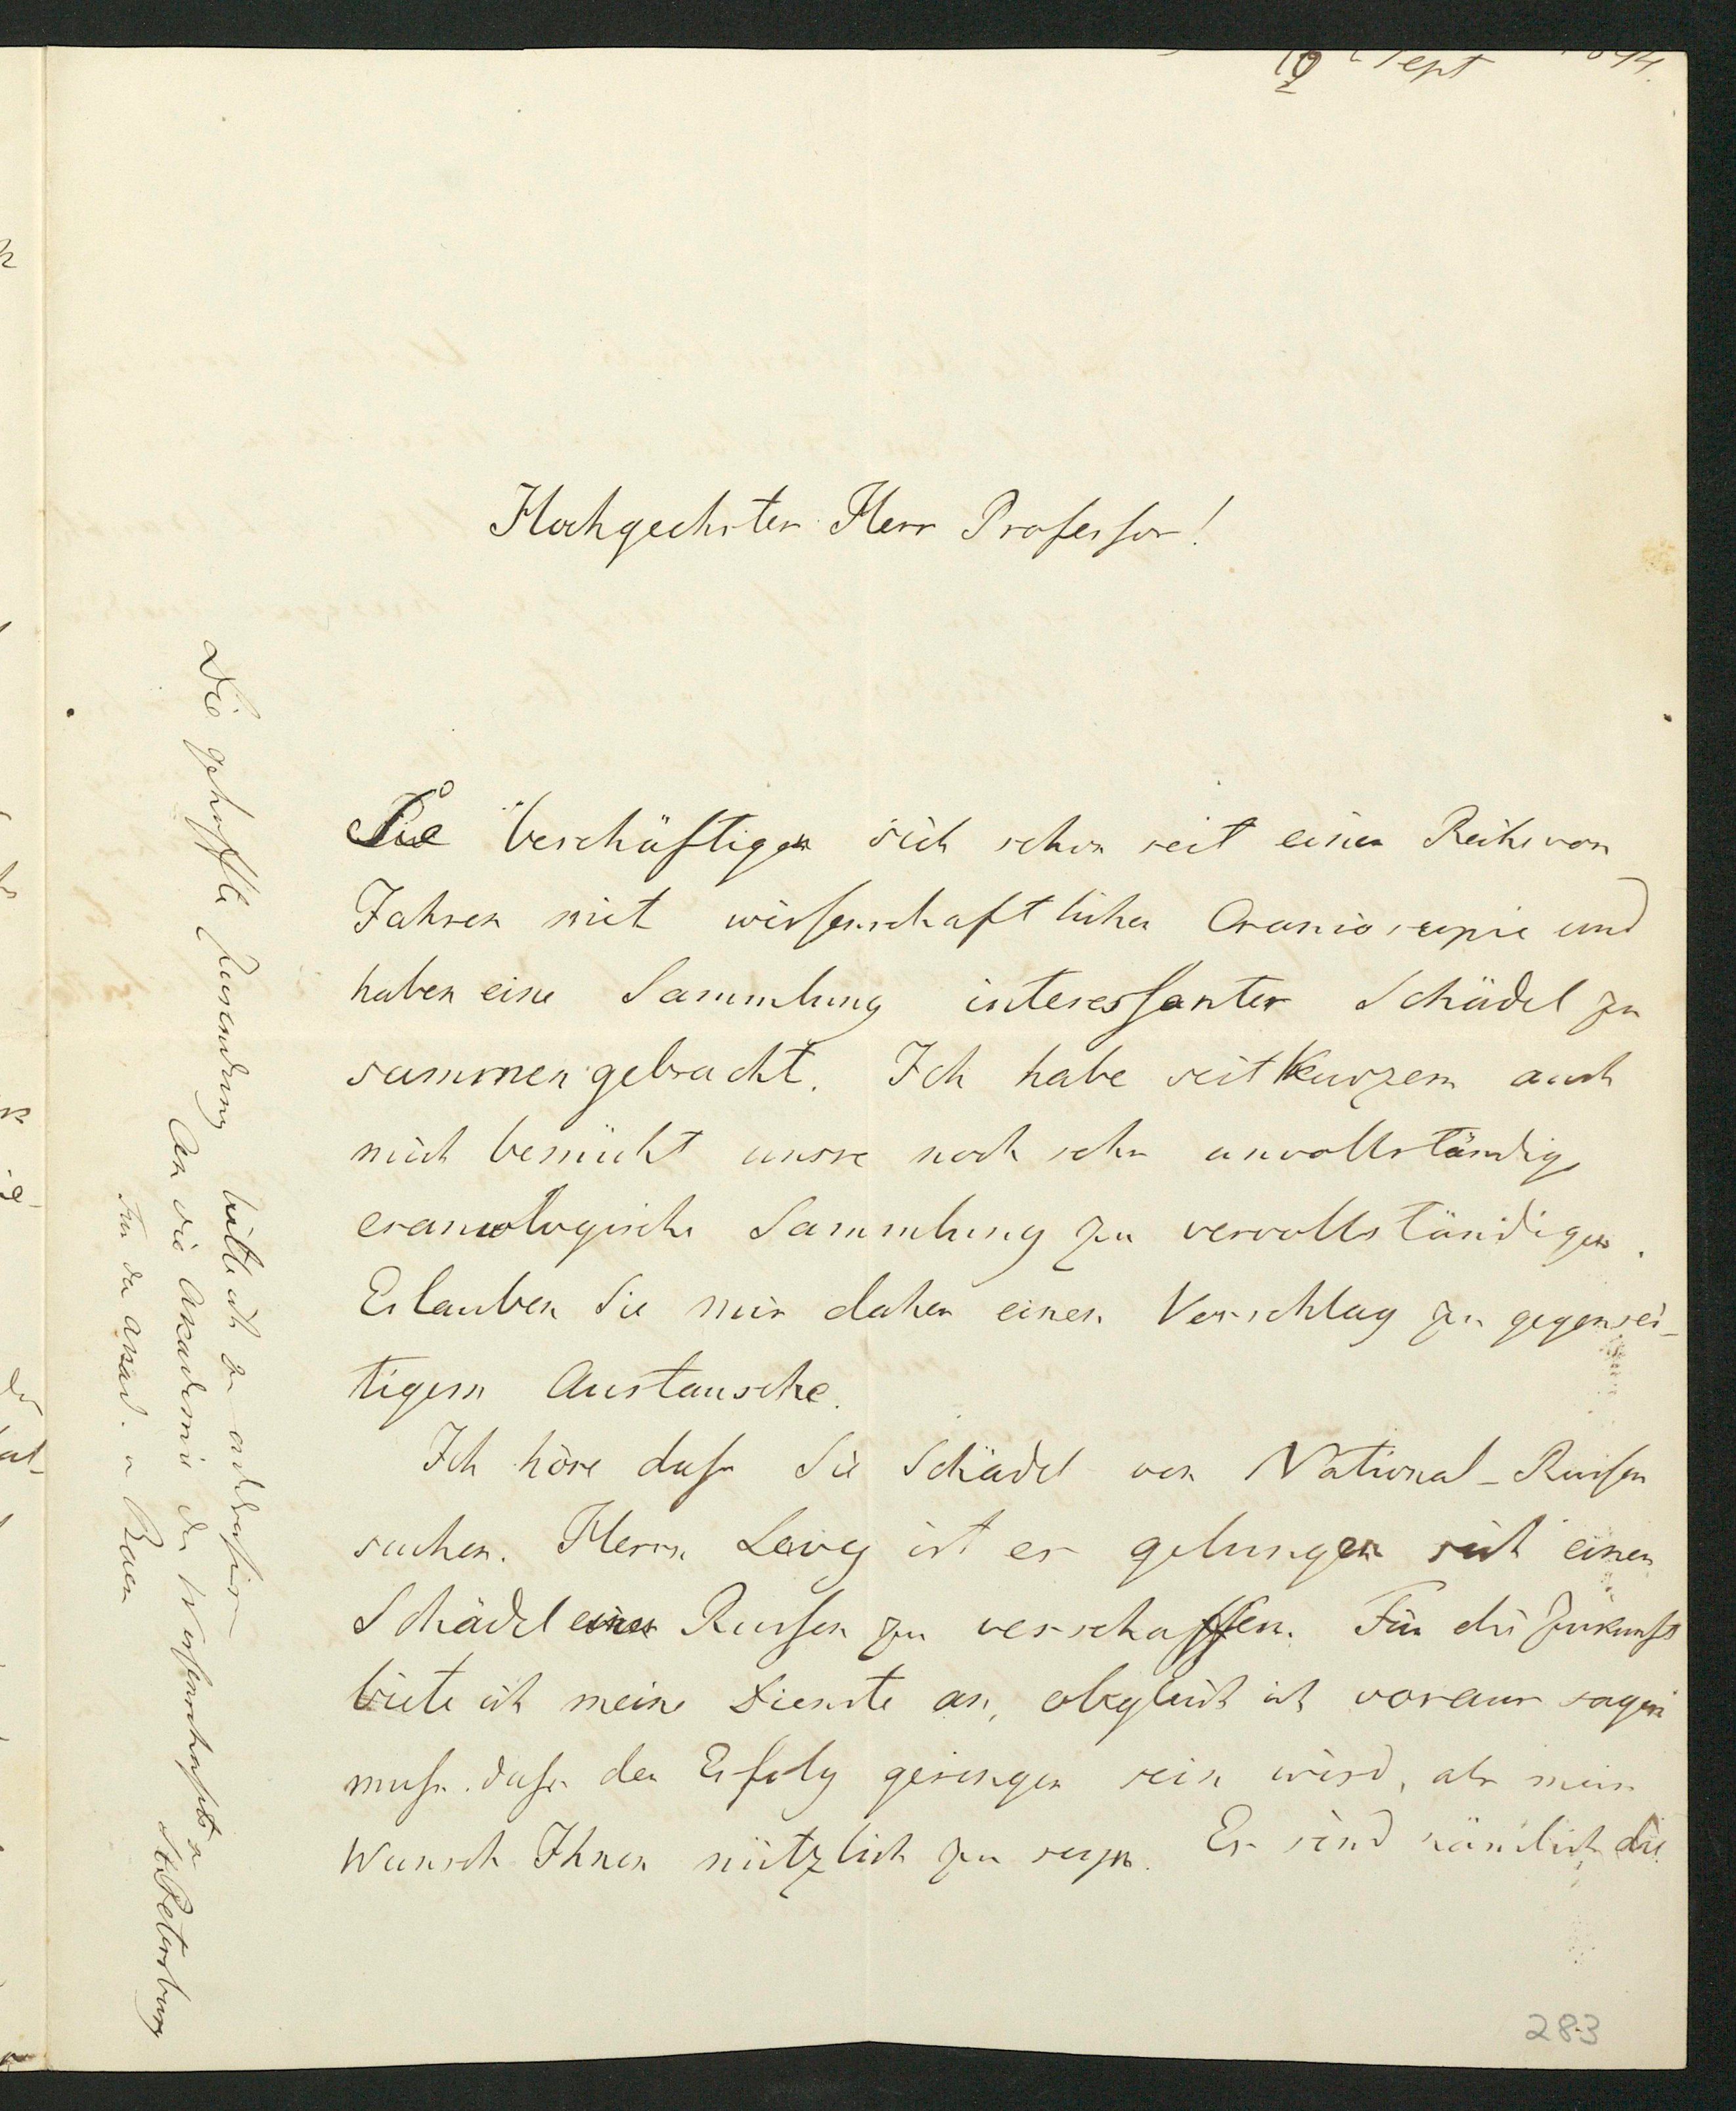 Sept
Hochgeehrter Herr Professor!
Sie beschäftigen sich schon seit einer Reihe von
Jahren mit wissenschaftlicher Cranioscopie und
haben eine Sammlung interessanter Schädel zu
sammengebracht. Ich habe seit Kurzem auch
mich bemüht unsre noch sehr unvollständige
craniologische Sammlung zu vervollständigen.
Erlauben Sie mir daher einen Vorschlag zu gegensei-
tigem Austausche.
Ich höre dass Sie Schädel von National-Russen
suchen. Herrn ist es gelungen sich einen
Schädel eines Russen zu verschaffen. Für die Zukunft
biete ich meine Dienste an, obgleich ich voraus sagen
muss, dass der Erfolg geringer sein wird, als mein
Wunsch Ihnen nützlich zu seyn. Es sind nämlich die
Die gehoffte Zusendung bitte ich zu addressiren
An die Akademie der Wissenschaften zu
St Petersburg
Für den Akad. v Baer
283